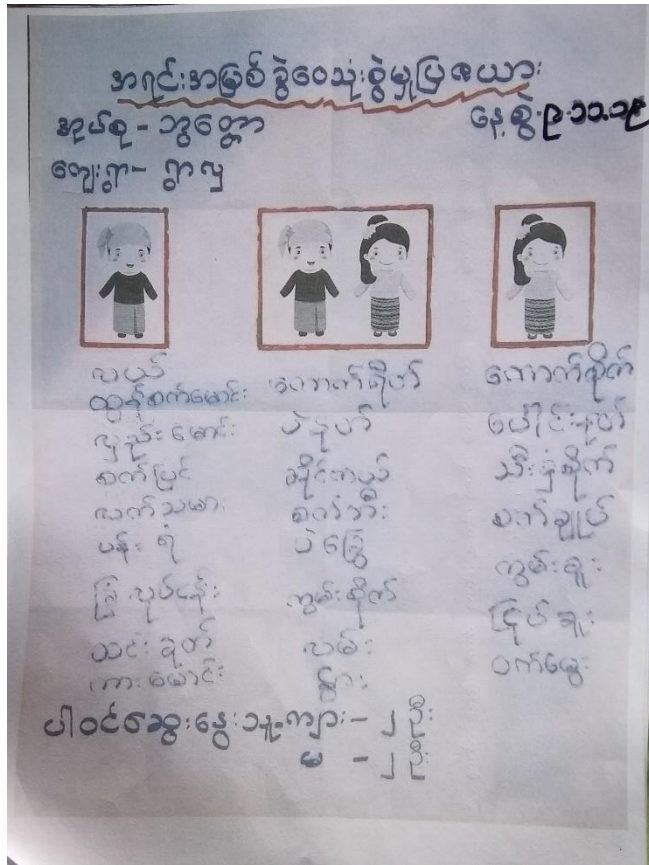 အရင်းအမြစ်ခွဲဝေသုံးစွဲမှုပြဇယား
အုပ်စု - ဘွတ္တော
နေ့စွဲ ၉.၁၁.၁၉
ကျေးရွာ - ရွာလှ
လယ်
ထွန်စက်မောင်း
လှည်းမောင်း
စက်ပြင်
လက်သမား
ပန်းရံ
ခြံလုပ်ငန်း
ထင်းခုတ်
ကားမောင်း
ကောက်ရိတ်
ပဲနုတ်
ဆိုင်ကယ်
စက်ဘီး
ပဲခြွေ
ကွမ်းစိုက်
လမ်း
ငှား
ကောက်စိုက်
ပေါင်းနုတ်
သီးနှံစိုက်
စက်ချုပ်
ကွမ်းခူး
ငြုပ်ခူး
ဝက်မွေး
ပါဝင်ဆွေးနွေးသူ ကျား - ၂ ဦး
မ - ၂ ဦး